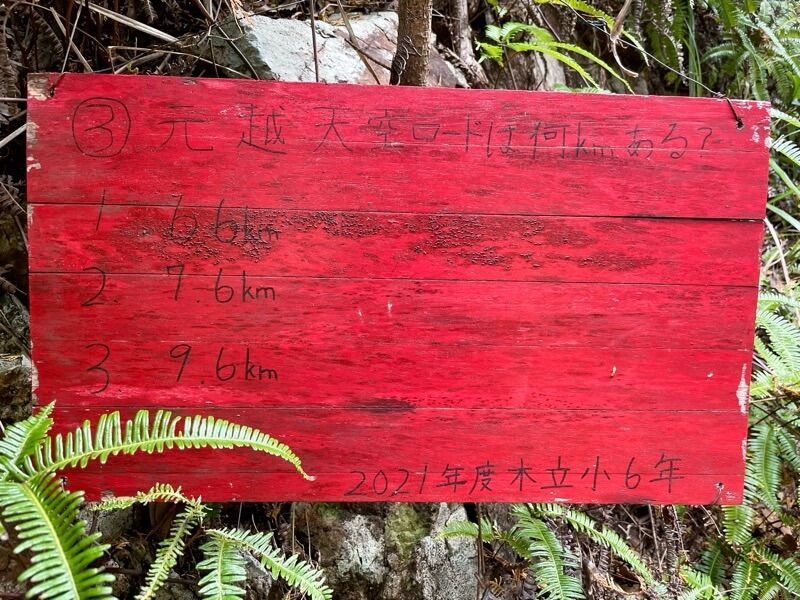 ③ 元越天空ロードは何kmある?
1 6.6km
2. 7.6km
3 9.6km
2021年度木立小6年